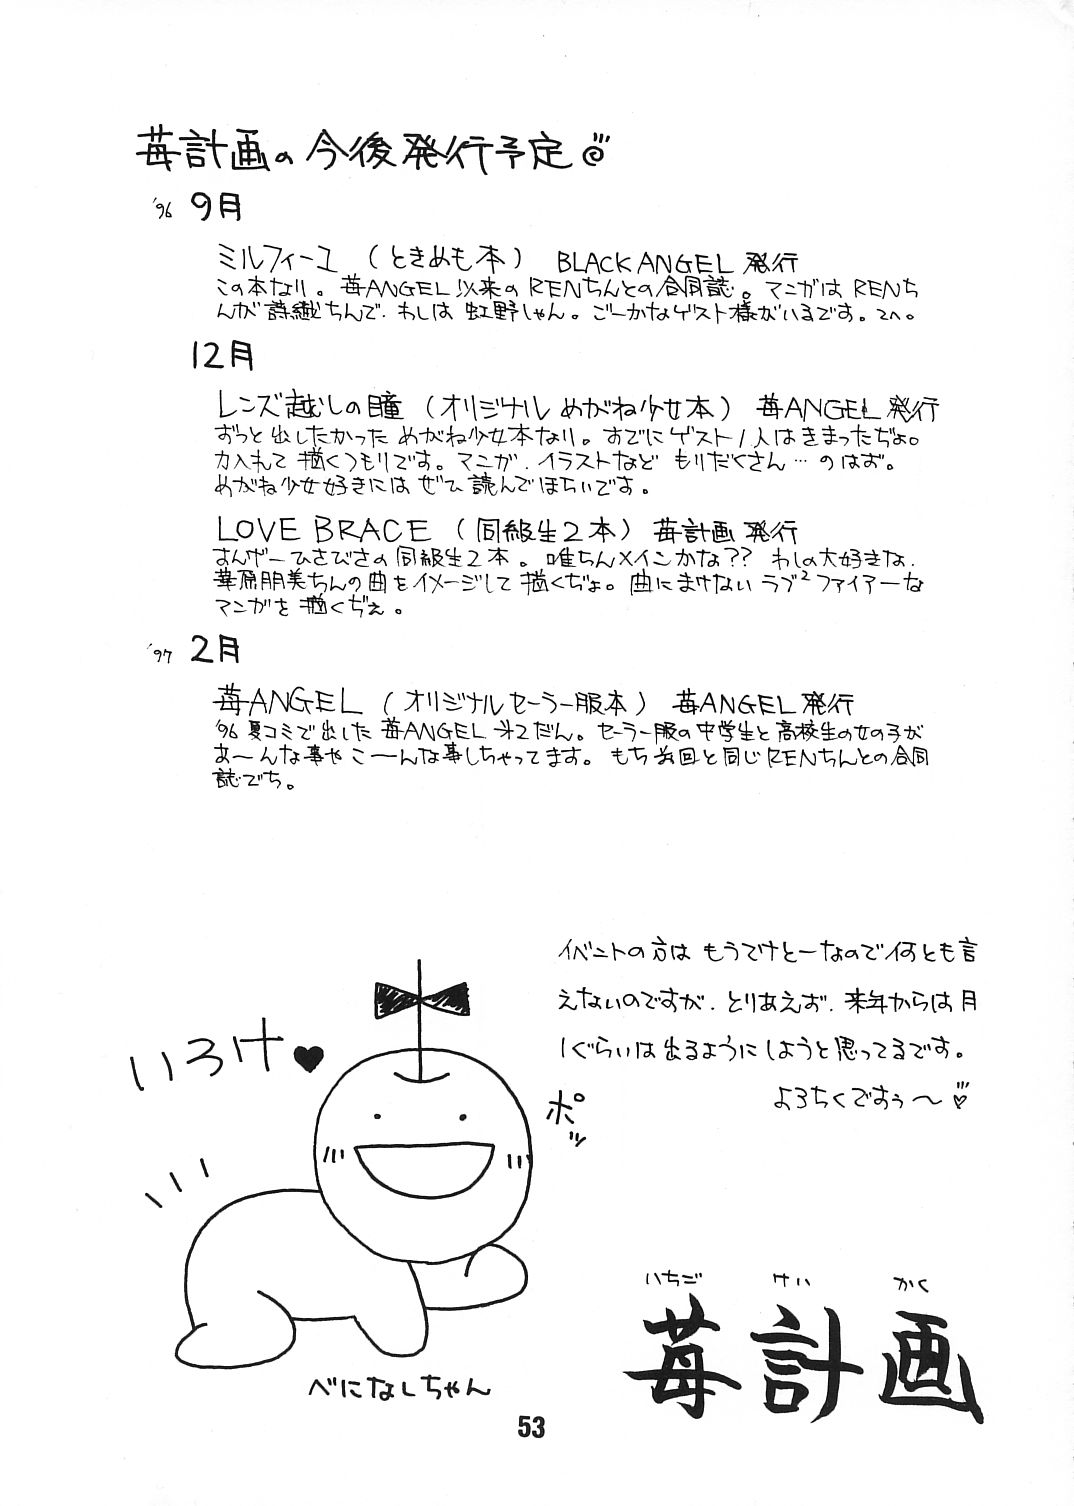 苺計画の今後発行予定
'96 9月
ミルフィーユ (ときめも本) BLACK ANGEL 発行
この本なり。苺ANGEL以来のRENちんとの合同誌。マンガはRENち
んが詩織ちんで、わしは虹野しゃん。ごーかなゲスト様がいるです。てへ。
12月
レンズ越しの瞳 (オリジナルめがね少女本) 苺ANGEL発行
ずっと出したかっためがね少女本なり。すでにゲスト1人はきまったぢょ。
力入れて描くつもりです。マンガ、イラストなどもりだくさん…のはず。
めがね少女好きにはぜひ読んでほちいです。
LOVE BRACE (同級生2本) 苺計画発行
すんげーひさびさの同級生2本。唯ちんメインかな?? わしの大好きな、
華原朋美ちんの曲をイメージして描くぢょ。曲にまけないラブ2ファイアーな
マンガを描くぢぇ。
'97 2月
苺ANGEL (オリジナルセーラー服本) 苺ANGEL発行
'96夏コミで出した苺ANGEL才2だん。セーラー服の中学生と高校生の女の子が
あ〜んな事やこ〜んな事しちゃってます。もち前回と同じRENちんとの合同
誌でち。
イベントの方はもうてけとーなので何とも言
えないのですが、とりあえず、来年からは月
1ぐらいは出るようにしようと思ってるです。
よろちくですぅ〜
いろけ♥
ポッ
べになしちゃん
いちご けい かく
苺計画
53